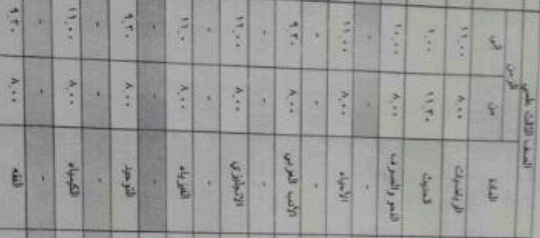 الصف الثالث علمي
المادة الزمن
من إلى
الرياضيات ٨,٠٠ ١١,٠٠
الحديث ١١,٣٠ ١,٠٠
النحو والصرف ٨,٠٠ ١٠,٠٠
- - -
الأحياء ٨,٠٠ ١١,٠٠
- - -
الأدب العربي ٨,٠٠ ٩,٣٠
- - -
الانجليزي ٨,٠٠ ١١,٠٠
- - -
الفيزياء ٨,٠٠ ١١,٠٠
- - -
التوحيد ٨,٠٠ ٩,٣٠
- - -
الكيمياء ٨,٠٠ ١١,٠٠
- - -
الفقه ٨,٠٠ ٩,٣٠